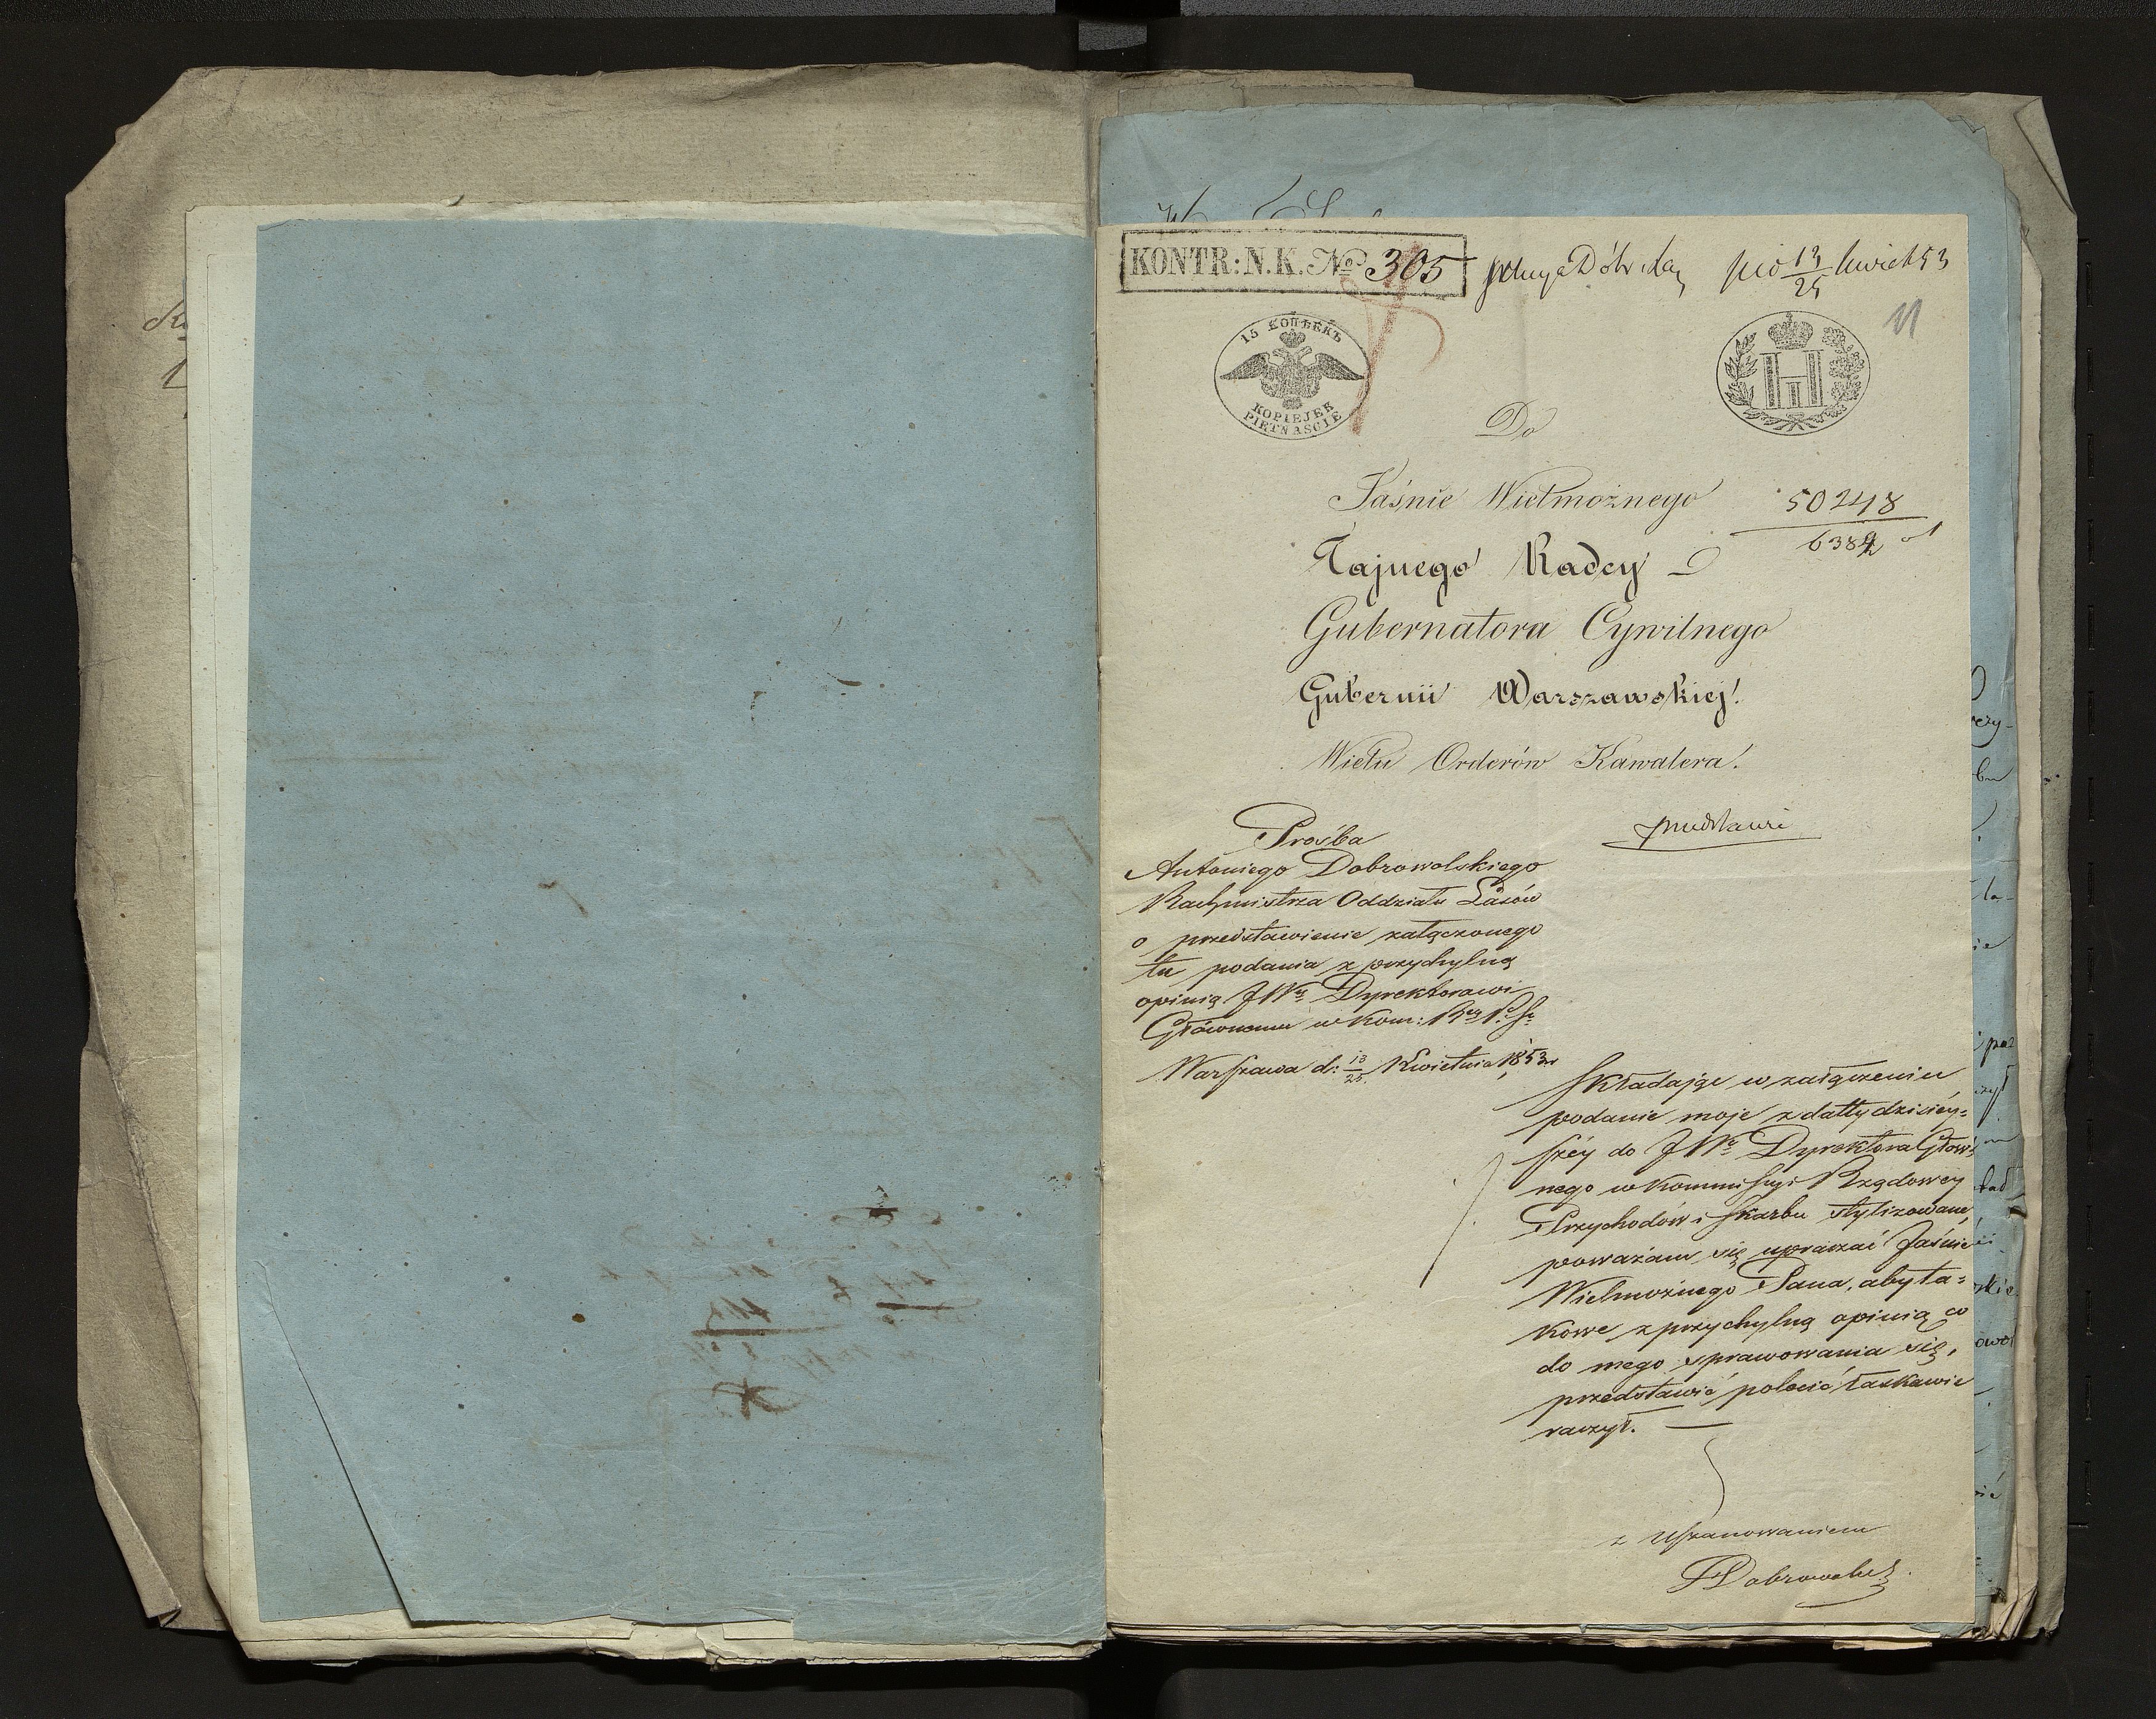 KONTR: N. K. No 305
13/25 kwiet 53
11
15 КОПѢЕКЪ
KOPIEJEK
PIĘTNAŚCIE
Н II
Do
Jaśnie Wielmożnego
50248
6382
Tajnego Radcy
Gubernatora Cywilnego
Gubernii Warszawskiej!
Wielu Orderów Kawalera!
Prośba
Antoniego Dobrowolskiego
Rachmistrza Oddziału Lasów
o przedstawienie załączonego
tu podania z przychylną
opinią JWu Dyrektorowi
Głównemu w Kom:
Warszawa d: 13/25 Kwietnia 1853r
Składając w załączeniu
podanie moje z datty dzisiéy=
széy do JWo Dyrektora Głów=
nego w Kommissyi Rządowey
Przychodów i Skarbu stylizowane,
poważam się upraszać Jaśnie
Wielmożnego Pana, aby ta=
kowe z przychylną opinią co
do mego sprawowania się,
przedstawić polecić łaskawie
raczył. —
z uszanowaniem
Dobrowolski